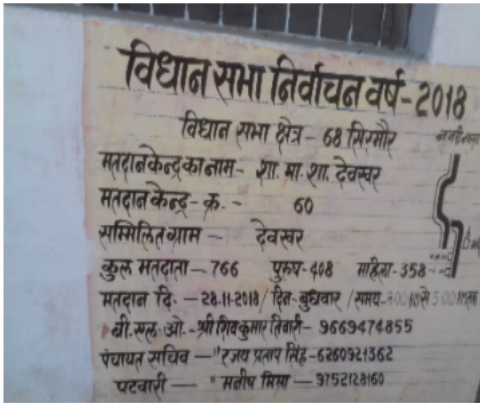 विधान सभा निर्वाचन वर्ष-2018
विधान सभा क्षेत्र - 68 सिरमौर
मतदान केन्द्र का नाम - शा. मा. शा. देवखर
मतदान केन्द्र - क्र. - 60
सम्मिलित ग्राम - देवखर
कुल मतदाता - 766 पुरुष-408 महिला-358
मतदान दि. - 28.11.2018/ दिन-बुधवार /समय-8:00 से 5:00
बी.एल.ओ.-श्री शिवकुमार तिवारी- 9669474855
पंचायत सचिव - "रजय प्रताप सिंह-6260921362
पटवारी - " मनीष मिश्रा - 9752128160